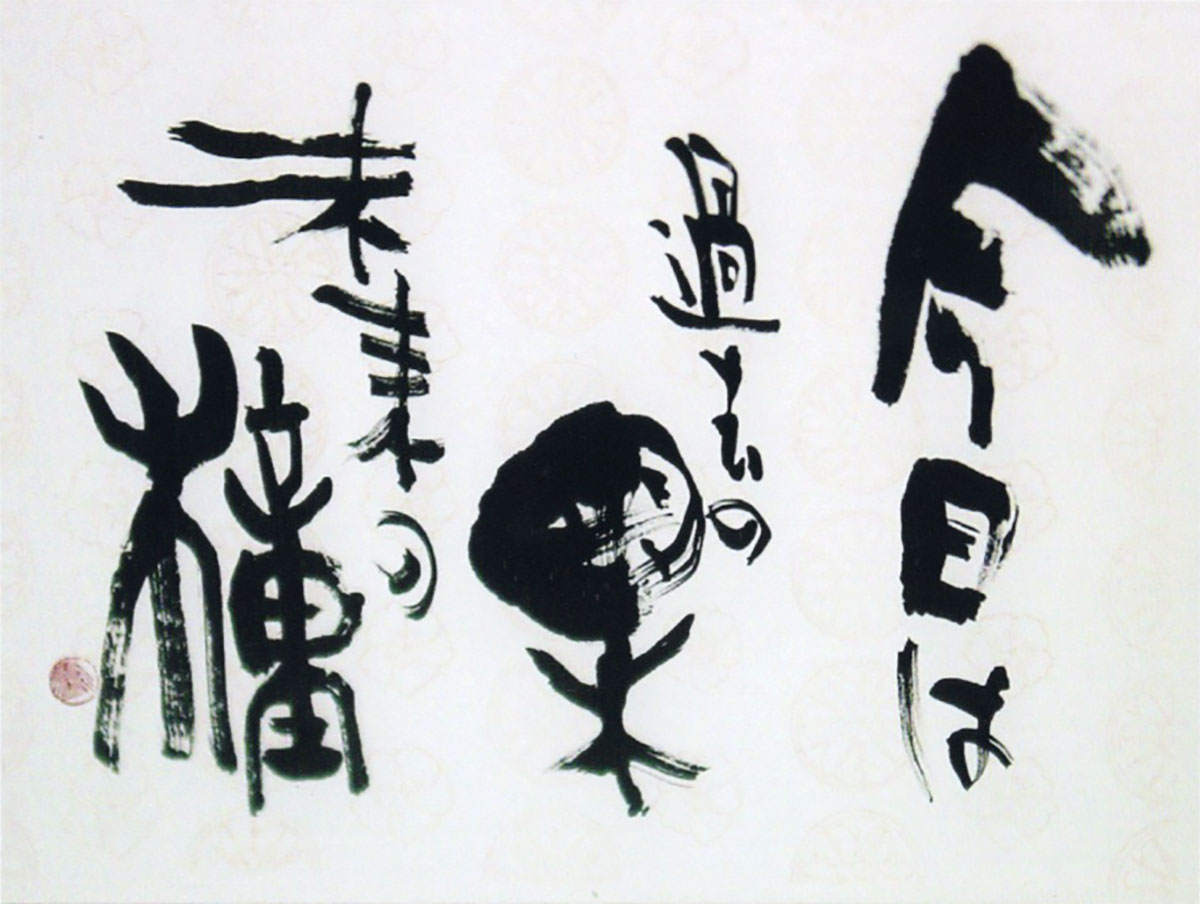 今日は
過去の果
未来の種